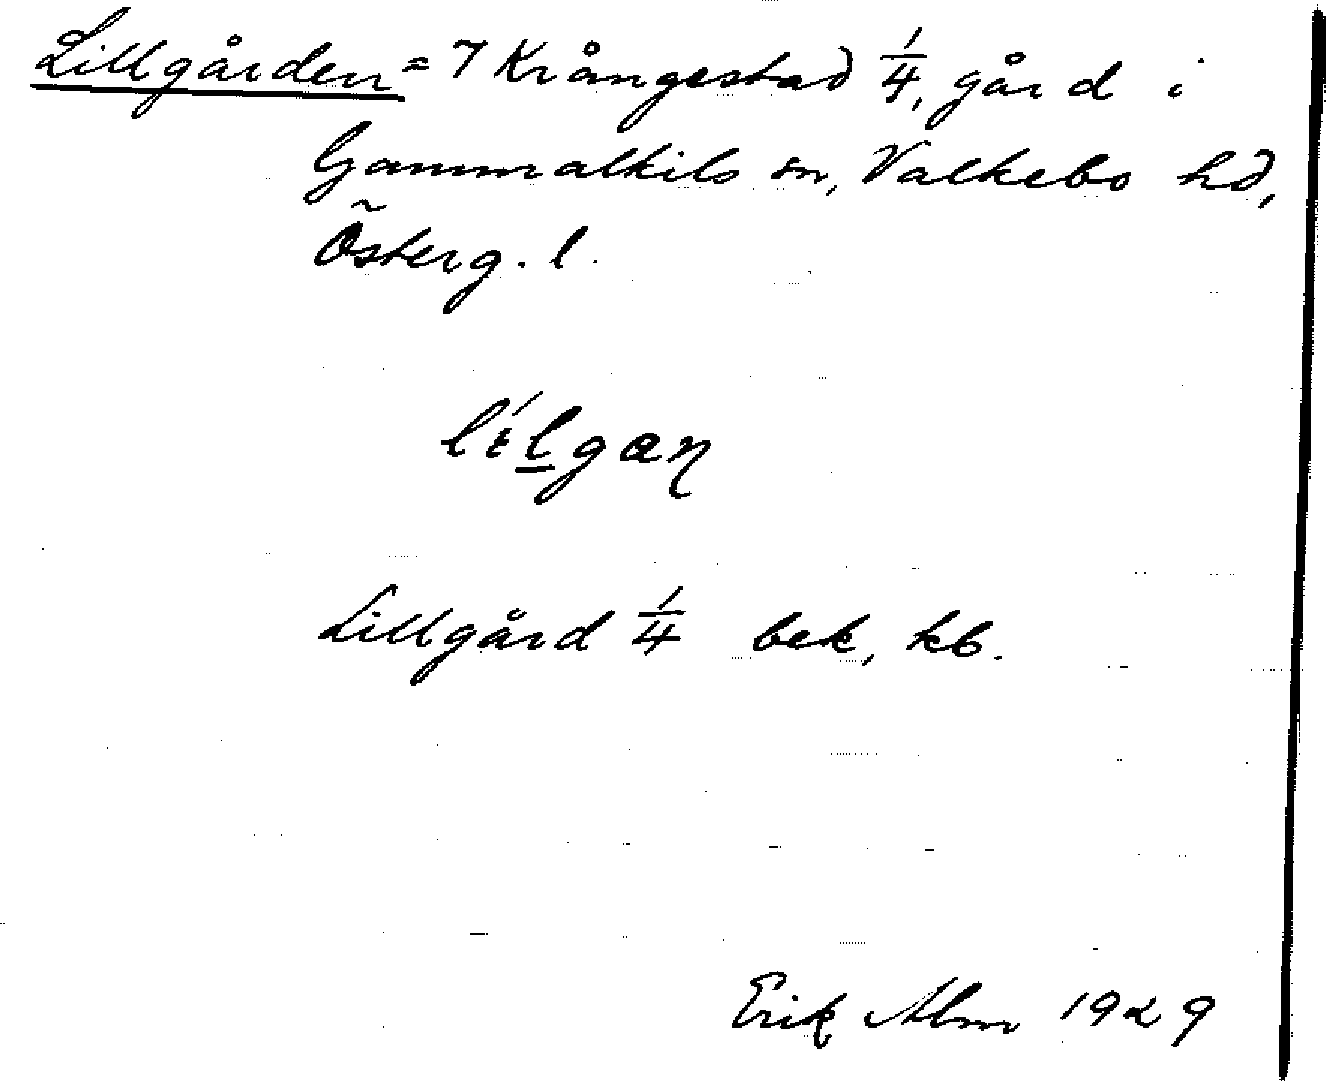 Lillgården = 7 Krångestad 1/4, gård i
Gammalkils sn, Valkebo hd,
Österg. l.
lílgaɳ
Lillgård 1/4 bek, kb.
Erik Alm 1929